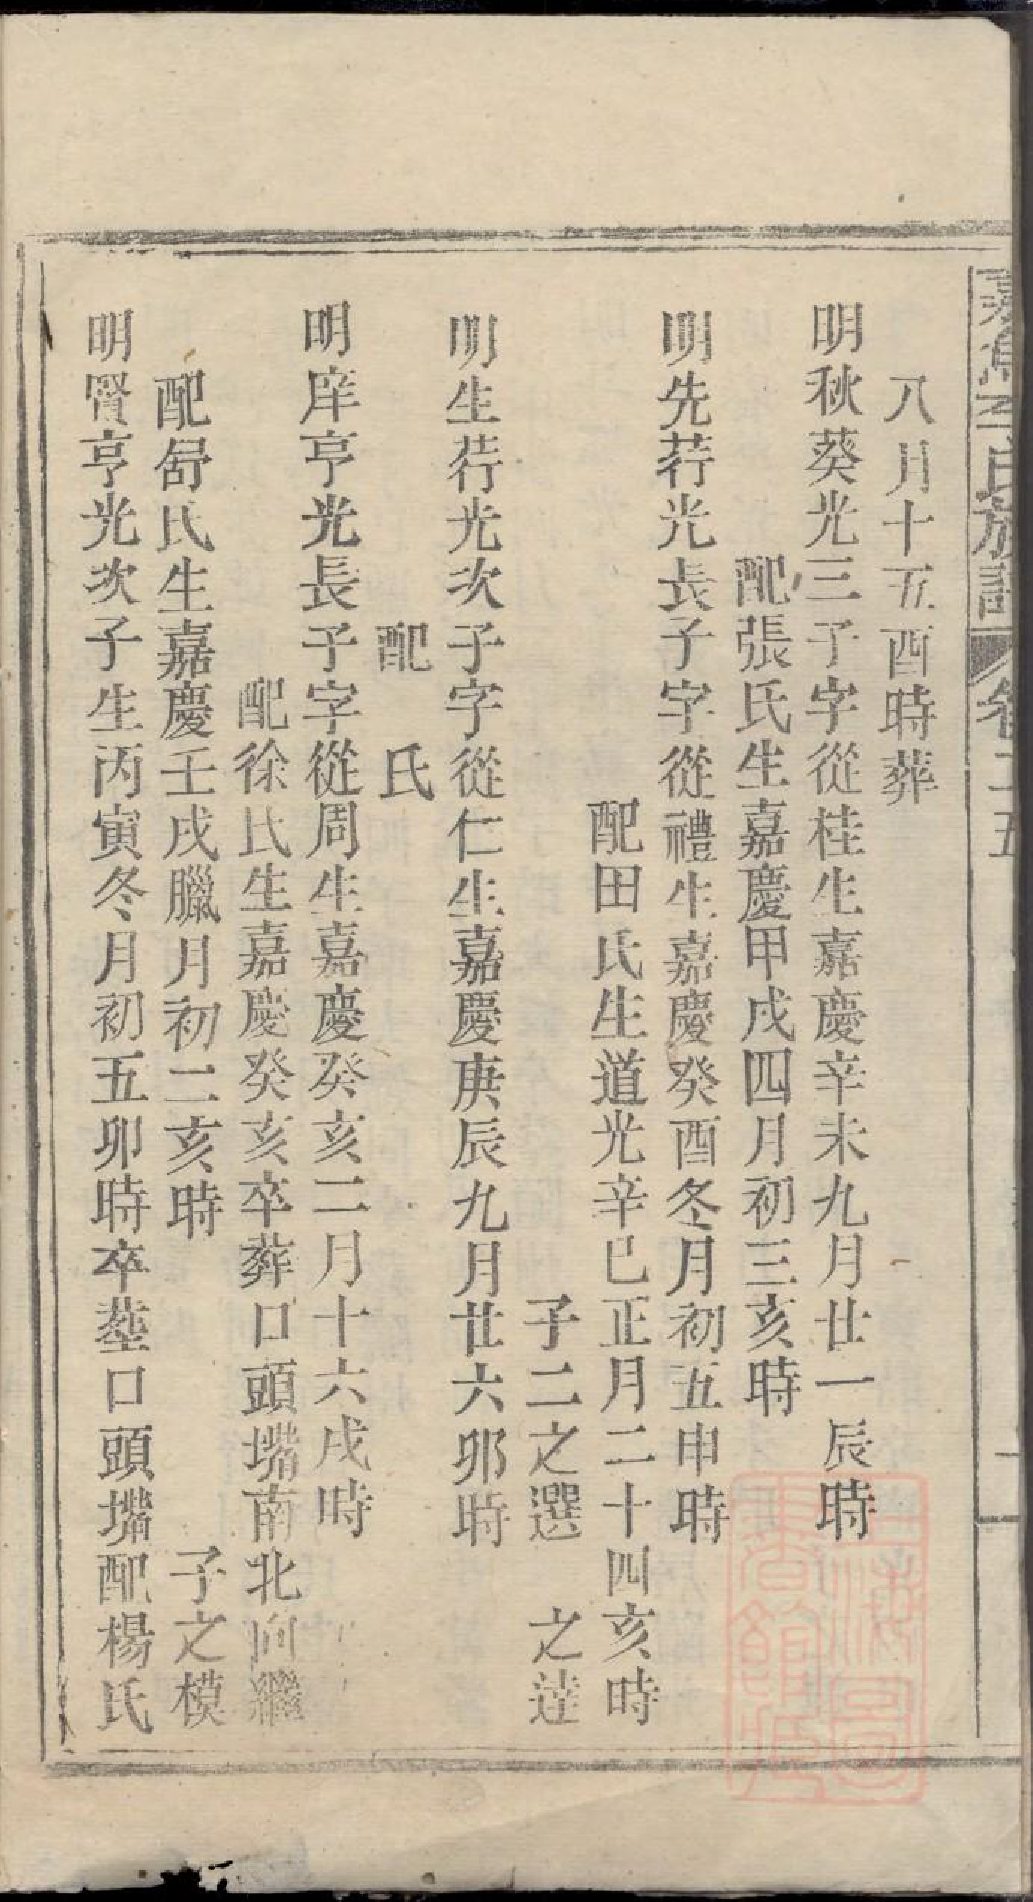 嘉魚李氏族譜 卷二五
八月十五酉時葬
明秋葵光三子字從桂生嘉慶辛未九月廿一辰時
配張氏生嘉慶甲戌四月初三亥時
明先荇光長子字從禮生嘉慶癸酉冬月初五申時
配田氏生道光辛巳正月二十四亥時
子二之選 之逹
明生荇光次子字從仁生嘉慶庚辰九月廿六卯時
配 氏
明庠亨光長子字從周生嘉慶癸亥二月十六戌時
配徐氏生嘉慶癸亥卒葬口頭嘴南北向繼
配舒氏生嘉慶壬戌臘月初二亥時 子之模
明賢亨光次子生丙寅冬月初五卯時卒塟口頭嘴配楊氏